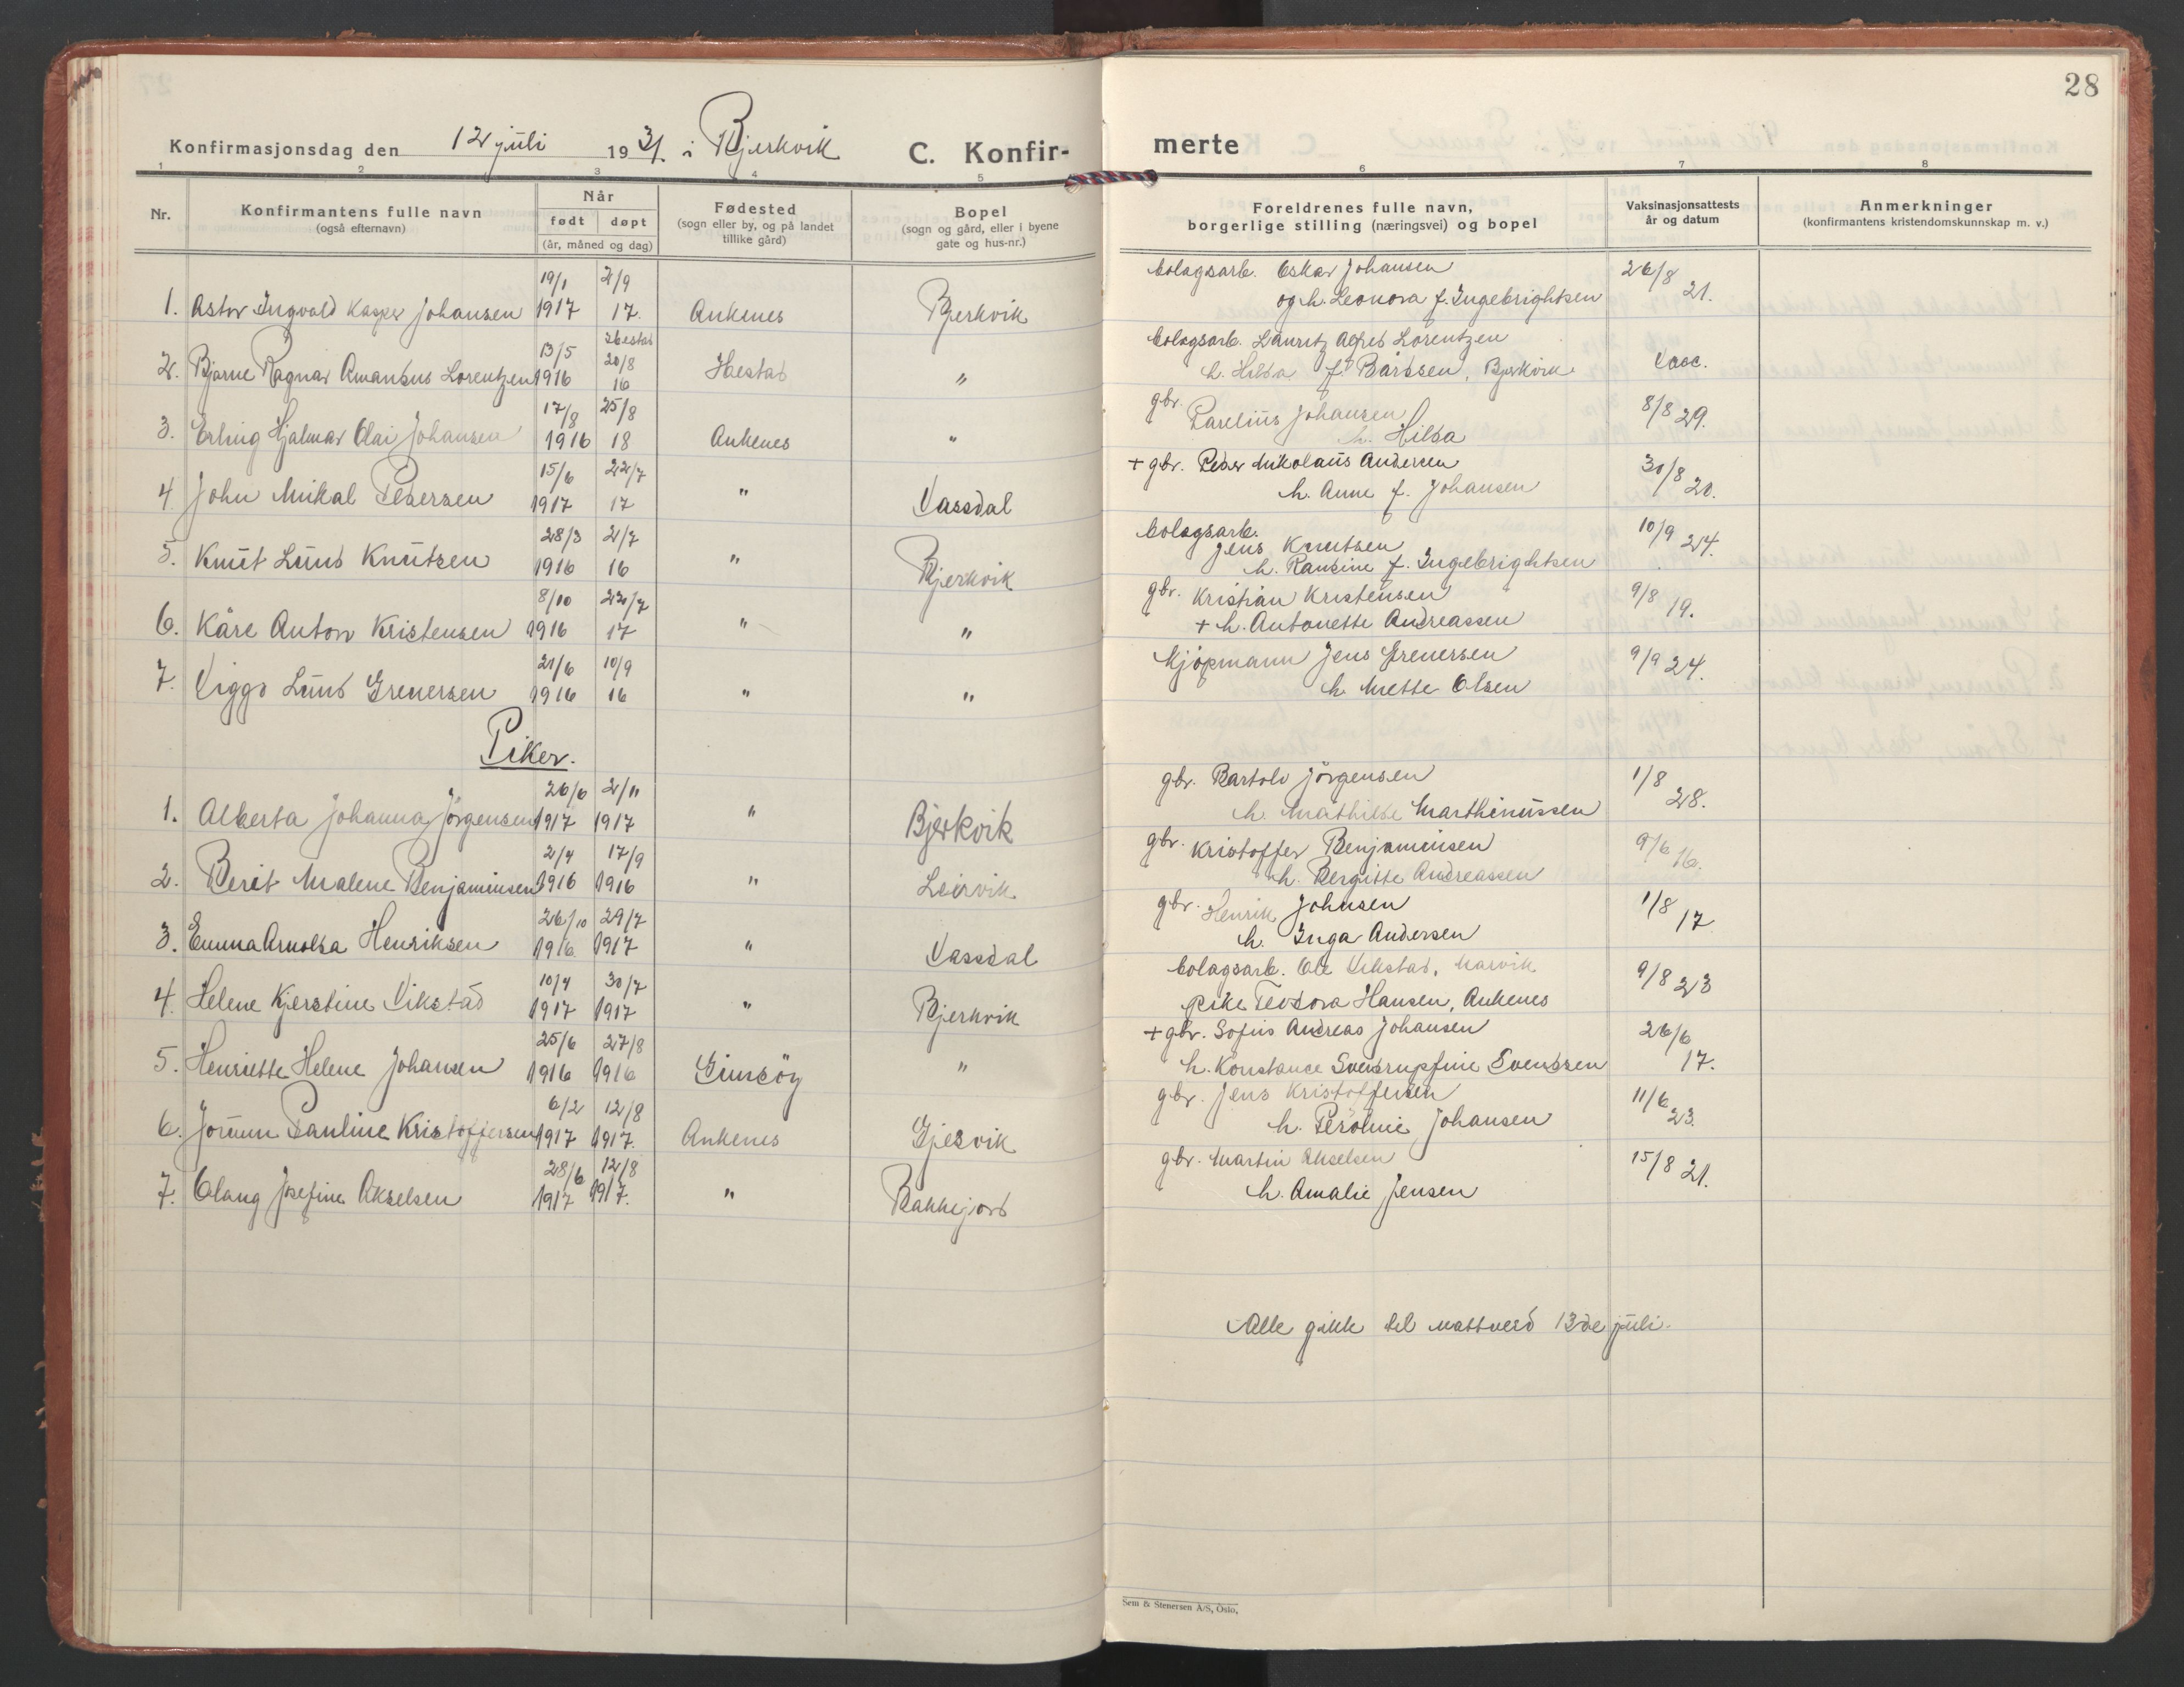 28
Konfirmasjonsdag den 12 juli 1931. i Bjerkvik C. Konfir- merte
1 2 3 4 5 6 7 8
Nr. Konfirmantens fulle navn (også efternavn) Når født døpt (år, måned og dag) Fødested (sogn eller by, og på landet tillike gård) Bopel (sogn og gård, eller i byene gate og hus-nr.) Foreldrenes fulle navn, borgerlige stilling (næringsvei) og bopel Vaksinasjonsattests år og datum Anmerkninger (konfirmantens kristendomskunnskap m. v.)
19/1 2/9 bolagsarb. Oskar Johansen 26/8
1. Astor Ingvald Kasper Johansen 1917 17. Ankenes Bjerkvik og h. Leonora f. Ingebrightsen 21.
13/5 20/8 bolagsarb. Lauritz Alfred Lorentzen
2. Bjarne Ragnar Amandus Lorentzen 1916 16 " h. Hilda f. Bårdsen, Bjerkvik Vacc.
17/8 25/8 gbr. Parelius Johansen 8/8
3. Erling Hjalmar Olai Johansen 1916 18 Ankenes " h. Hilda 29.
15/6 22/7 + gbr. Peder Nikolaus Andersen 30/8
4 John Mikal Pedersen 1917 17 " Vassdal h. Anne f. Johansen 20.
28/3 2/7 bolagsarb. Jens Knutsen 10/9
5. Knut Lund Knutsen 1916 16 " Bjerkvik h. Randine f. Ingebrightsen 24.
8/10 22/7 gbr. Kristian Kristensen 9/8
6. Kåre Anton Kristensen 1916 17 " " + h. Antonette Andreassen 19.
21/6 10/9 Kjøpmann Jens Grenersen 9/9
7. Viggo Lund Grenersen 1916 16 " " h. Mette Olsen 24.
Piker.
26/6 2/11 gbr. Bartolv Jörgensen 1/8
1. Alberta Johanna Jörgensen 1917 1917 " Bjerkvik h. Mathilde Marthinussen 28.
2/4 17/9 gbr. Kristoffer Benjaminsen 9/6
2. Berit Malene Benjaminsen 1916 1916 " Leirvik h. Bergitte Andreassen 16.
26/10 29/7 gbr. Henrik Johnsen 1/8
3. Emma Arnolda Henriksen 1916. 1917 " Vassdal h. Inga Andersen 17
10/4 30/7 bolagsarb. Ole Vikstad, Narvik 9/8
4. Helene Kjerstine Vikstad 1917 1917 " Bjerkvik pike Teodora Hansen, Ankenes 23
25/6 27/8 + gbr. Sofus Andreas Johansen 26/6
5. Henriette Helene Johansen 1916 1916 Gimsöy " h. Konstance Sverdrupfine Svendsen 17.
6/2 12/8 gbr. Jens Kristoffersen 11/6
6. Jorunn Pauline Kristoffersen 1917 1917. Ankenes Gjesvik h. Johansen 23.
28/6 12/8 gbr. Martin Akselsen 15/8
7. Olaug Josefine Akselsen 1917 1917. " Bakkejord h. Amalie Jensen 21.
Alle gikk til nattverd 13de juli.
Sem & Stenersen A/S, Oslo,